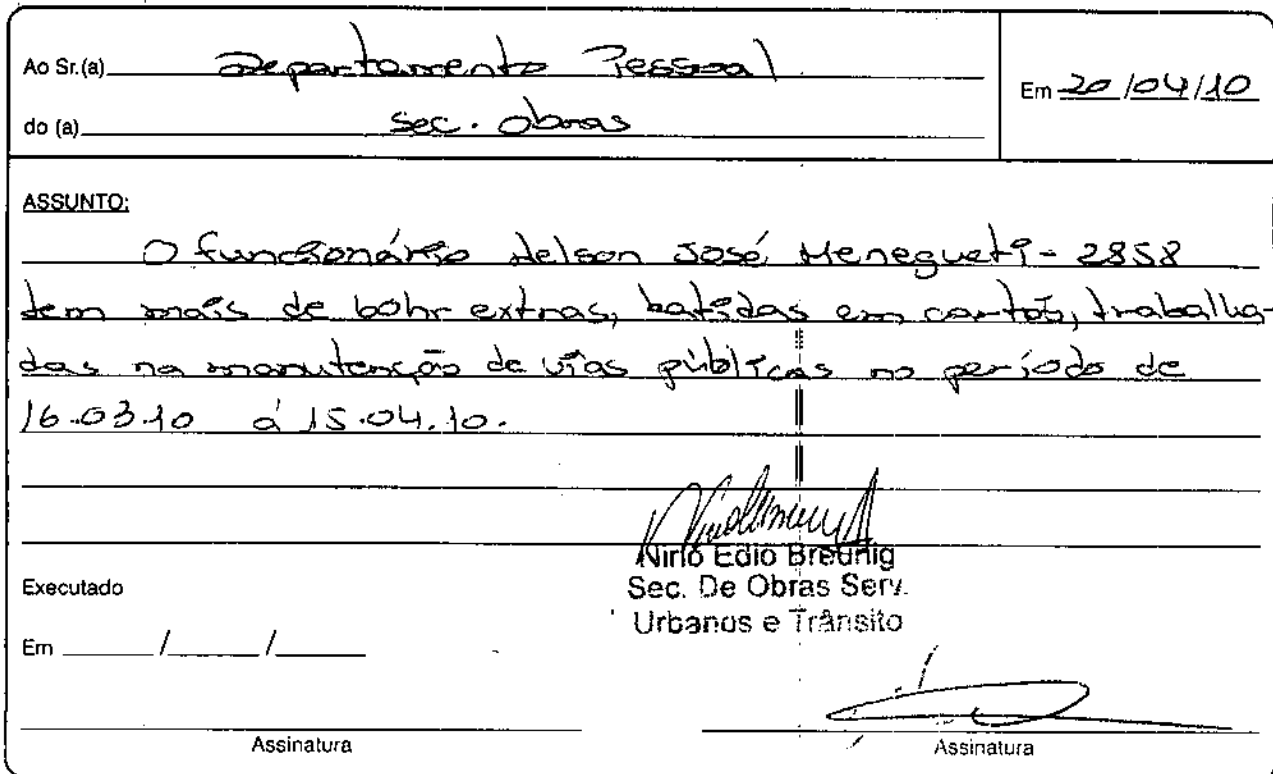 Ao Sr.(a) Departamento Pessoal
Em 20/04/10
do (a) Sec. Obras
ASSUNTO:
O funcionário Nelson José Menegueti - 2858
tem mais de 60hr extras, batidas em cartão, trabalha-
das na manutenção de vias públicas no período de
16.03.10 á 15.04.10.
Nirio Edio Breunig
Sec. De Obras Serv.
Urbanos e Trânsito
Executado
Em ____/____/____
Assinatura
Assinatura